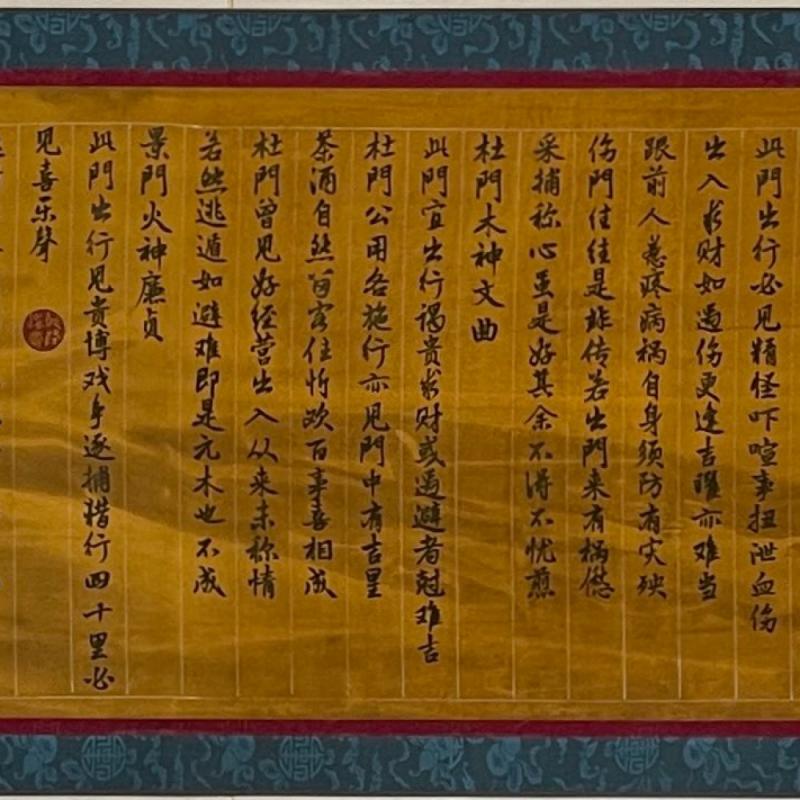 此門出行必见精怪吓喧事扭泄血伤
出入求财如遇伤更逢吉曜亦难当
跟前人惹疼病祸自身须防有灾殃
伤門往往是非传若出門来有祸愆
采捕称心虽是好其余不得不忧煎
杜門木神文曲
此門宜出行谒贵求财或遇避者尅难吉
杜門公用各施行亦见門中有吉星
茶酒自然留客住忻欢百事喜相成
杜門曾见好经营出入从来未称情
若然逃遁如避难即是元木也不成
景門火神廉贞
此門出行见贵博戏争逐捕猎行四十里必
见喜乐聲